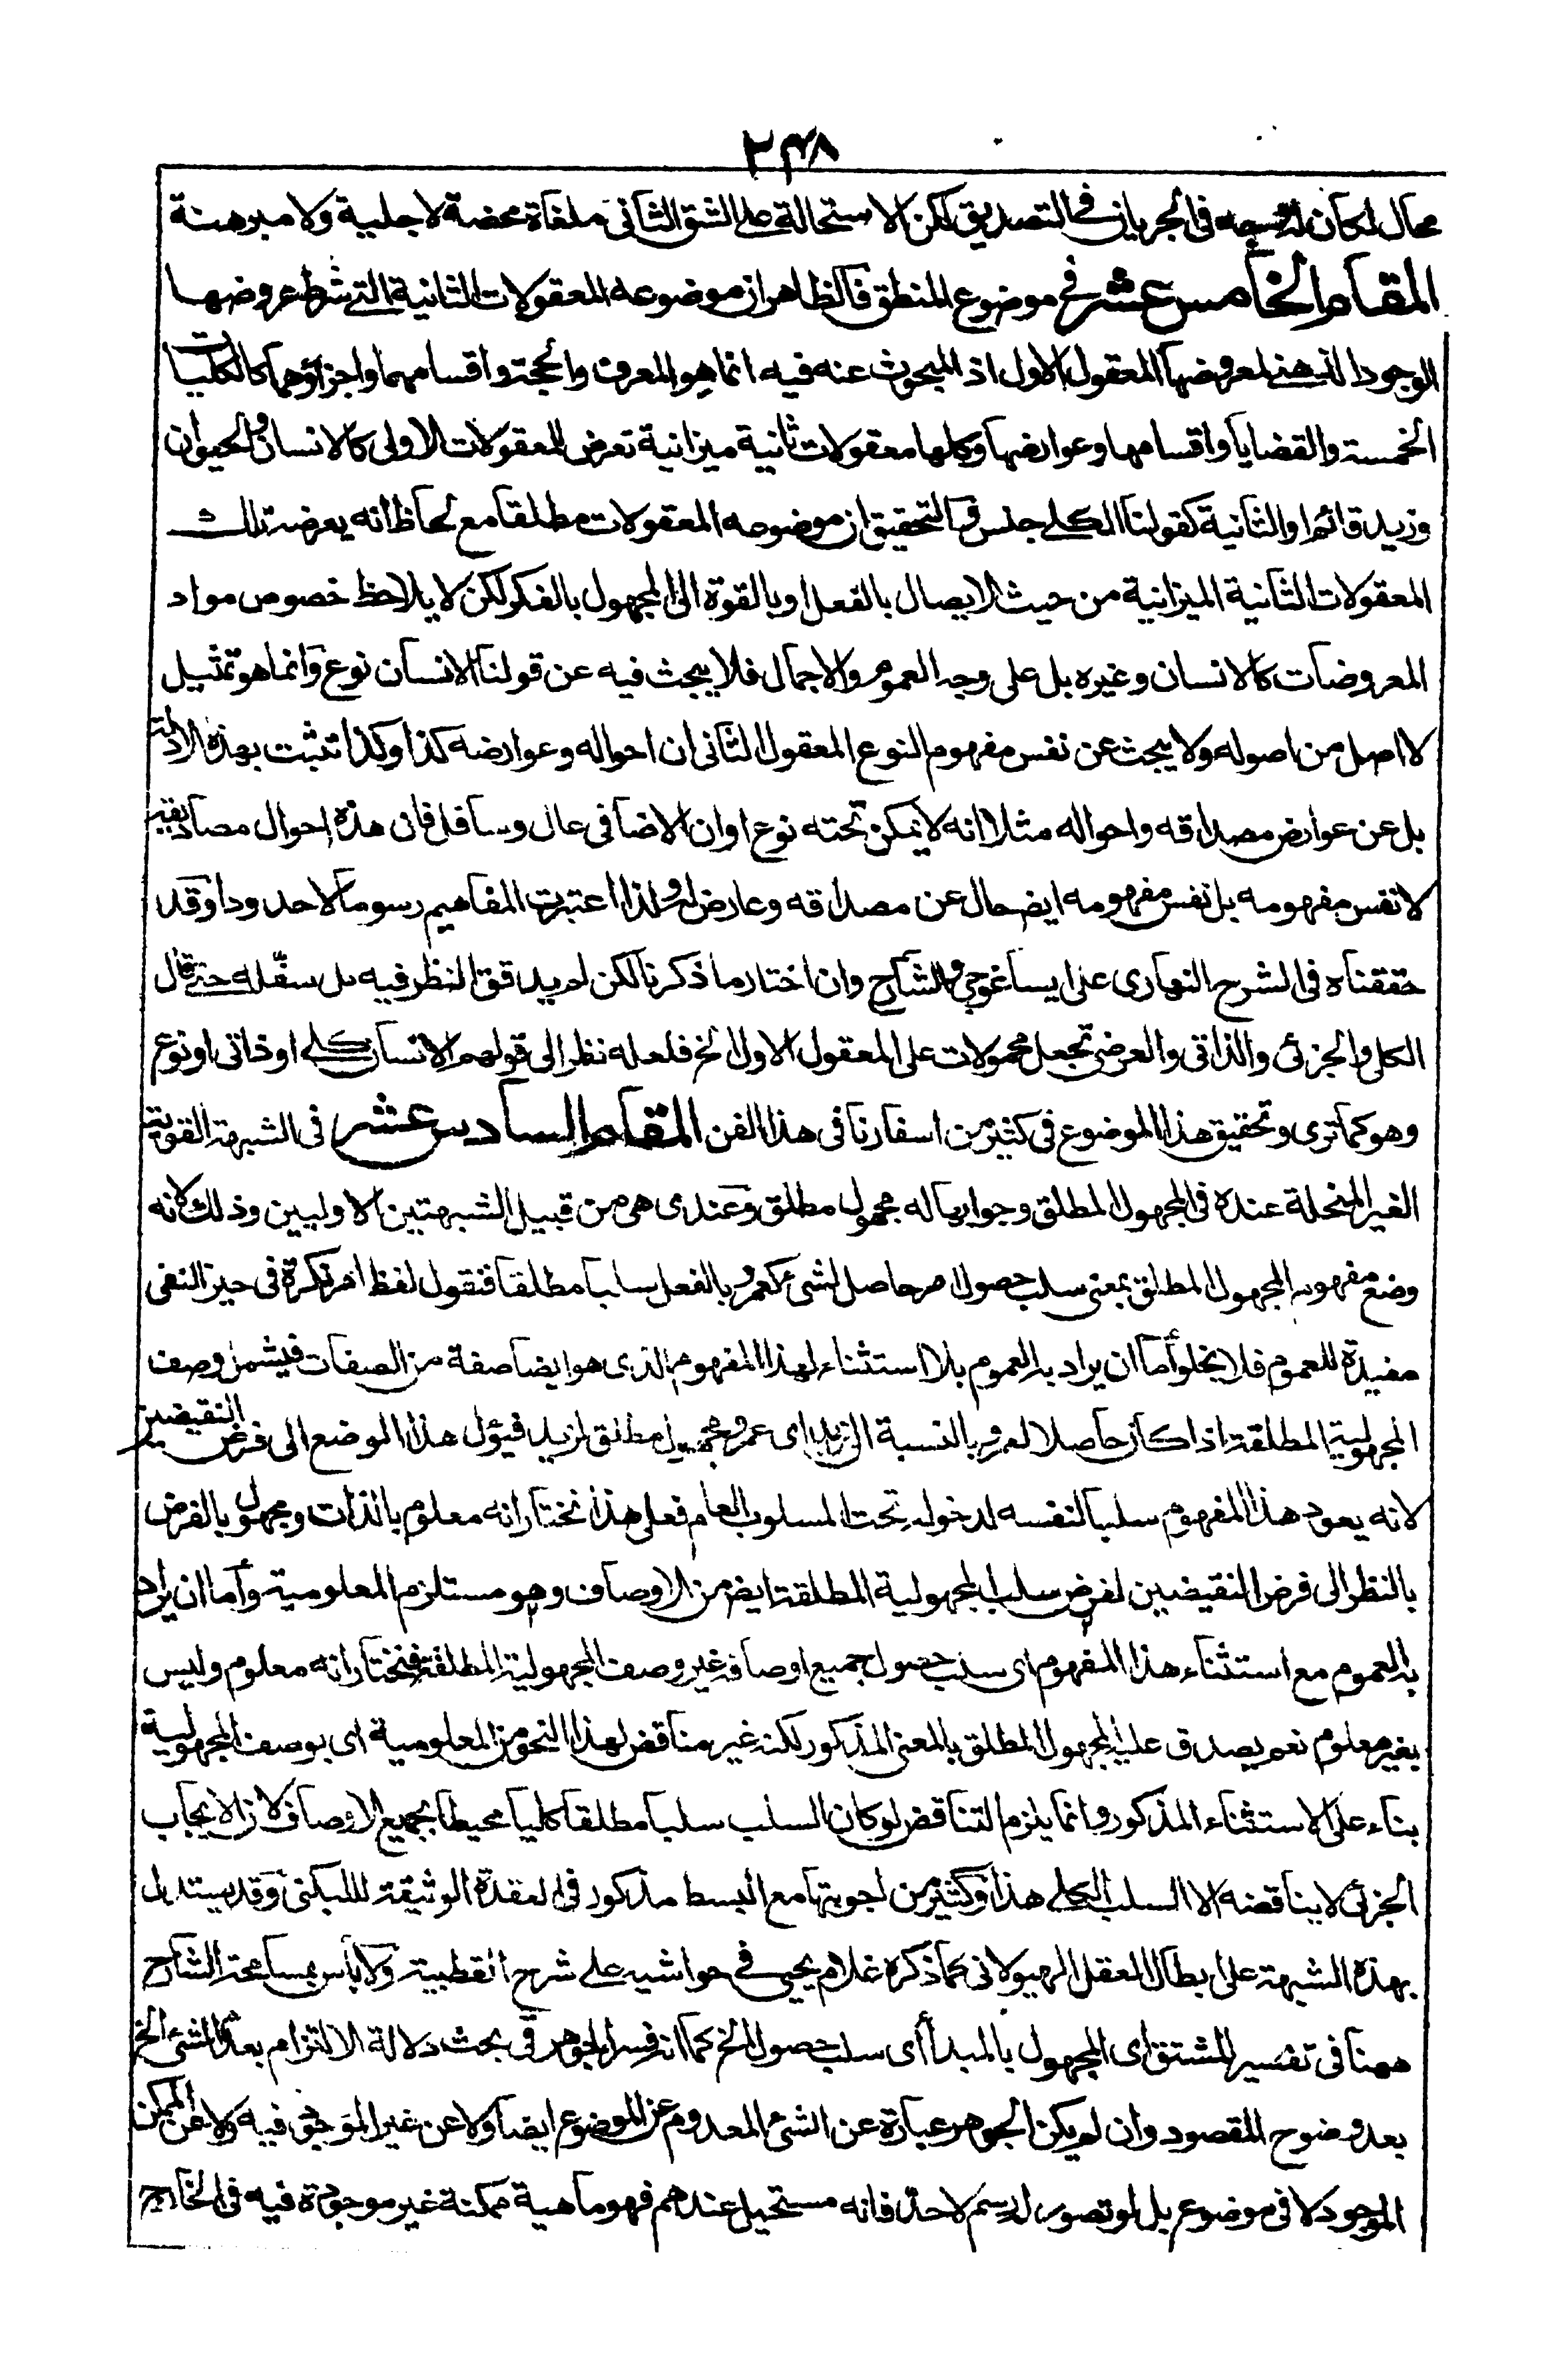 ٢٣٨
محال لكان له وجه فى الجريان فى التصديق لكن الاستحالة على الشق الثانى ملغاة محضة لا جلية ولا مبرهنة
المقام الخامس عشر فى موضوع المنطق فالظاهر ان موضوعه المعقولات الثانية التى شرط عروضها
الوجود الذهنى لمعروضها المعقول الاول اذ المبحوث عنه فيه انما هو المعرف والحجة واقسامهما واجزاؤهما كالكليات
الخمسة والقضايا واقسامها وعوارضها وكلها معقولات ثانية ميزانية تعرض للمعقولات الاولى كالانسان والحيوان
وزيد قائم او الثانية كقولنا الكلى جنس والتحقيق ان موضوعه المعقولات مطلقا مع لحاظ انه يعرضه تلك
المعقولات الثانية الميزانية من حيث الايصال بالفعل او بالقوة الى المجهول بالفكر لكن لا يلاحظ خصوص مواد
المعروضات كالانسان وغيره بل على وجه العموم والاجمال فلا يبحث فيه عن قولنا الانسان نوع وانما هو تمثيل
لا اصل من اصوله ولا يبحث عن نفس مفهوم النوع المعقول الثانى ان احواله وعوارضه كذا وكذا تثبت بهذه الادلة
بل عن عوارض مصداقه واحواله مثلا انه لا يمكن تحته نوع او ان الاضافى عال وسافل فان هذه احوال مصاديقه
لا نفس مفهومه بل نفس مفهومه ايض حال عن مصداقه وعارض له ولذا اعتبرت المفاهيم رسوما لا حدودا وقد
حققناه فى الشرح النهارى على ايساغوجى والشارح وان اختار ما ذكرنا لكن لم يدقق النظر فيه حتى قال
الكلى والجزئى والذاتى والعرضى تجعل محمولات على المعقول الاول الخ فلعله نظر الى قولهم الانسان كلى او ذاتى او نوع
وهو كما ترى وتحقيق هذا الموضوع فى كثير من اسفارنا فى هذا الفن المقام السادس عشر فى الشبهة القوية
الغير المنحلة عنده فى المجهول المطلق وجوابها له مجهول مطلق وعندى هى من قبيل الشبهتين الاوليين وذلك لانه
وضع مفهوم المجهول المطلق بمعنى سلب حصول امر حاصل لشئ كعمرو بالفعل سلبا مطلقا فنقول لفظ امر نكرة فى حيز النفى
مفيدة للعموم فلا يخلو أما ان يراد به العموم بلا استثناء لهذا المفهوم الذى هو ايضا صفة من الصفات فيشمل وصف
المجهولية المطلقة اذا كان حاصلا لعمرو بالنسبة الى زيد اى عمرو مجهول مطلق لزيد فيؤل هذا الموضع الى فرض النقيضين
لانه يعود هذا المفهوم سلبا لنفسه لدخوله تحت المسلوب العام فعلى هذا نختار انه معلوم بالذات ومجهول بالفرض
بالنظر الى فرض النقيضين لفرض سلب المجهولية المطلقة ايض من الاوصاف وهو مستلزم المعلومية وأما ان يراد
به العموم مع استثناء هذا المفهوم اى سلب حصول جميع اوصافه غير وصف المجهولية المطلقة فنختار انه معلوم وليس
بغير معلوم نعم يصدق عليه المجهول المطلق بالمعنى المذكور لكنه غير مناقض لهذا النحو من المعلومية اى بوصف المجهولية
بناء على الاستثناء المذكور وانما يلزم التناقض لو كان السلب سلبا مطلقا كليا محيطا بجميع الاوصاف لان الايجاب
الجزئى لا يناقضه الا السلب الكلى هذا وكثير من اجوبتها مع البسط مذكور فى العقدة الوثيقة لللبكنى وقد يستدل
بهذه الشبهة على ابطال العقل الهيولانى كما ذكره غلام يحيى فى حواشيه على شرح القطبية ولا بأس بمسامحة الشارح
ههنا فى تفسير المشتق اى المجهول بالمبدأ أى سلب حصول الخ كما انه فسر الجوهر فى بحث دلالة الالتزام بعدم الشئ الخ
بعد وضوح المقصود وان لم يكن الجوهر عبارة عن الشئ المعدوم عن الموضوع ايضا ولا عن غير الموجود فيه ولا عن الممكن
الموجود لا فى موضوع بل لو تصور له رسم لا حد فانه مستحيل عندهم فهو ماهية ممكنة غير موجودة فيه فى الخارج